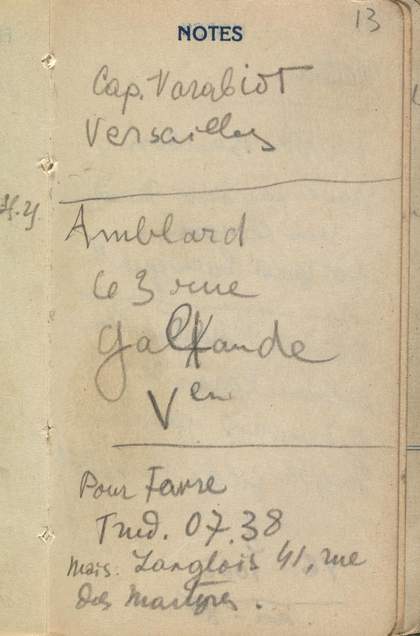 13
NOTES
Cap. Varabiot
Versailles
H.Y.
Amblard
63 rue
Galfande
Ven
Pour Favre
Trud. 07.38
Mais. Langlois 41, rue
des Martyrs.